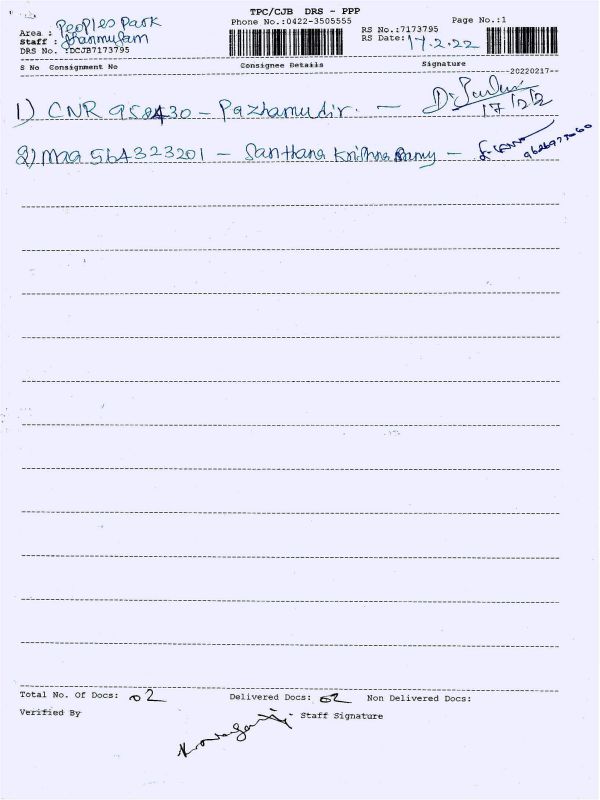 TPC/CJB DRS - PPP
Area : Peoples Park
Phone No.:0422-3505555
Page No.:1
Staff : Shanmugam
RS No.:7173795
DRS No. :DCJB7173795
RS Date: 17.2.22
S No Consignment No Consignee Details Signature
--20220217--
1.) CNR 958430 - Pazhamudir. -
17/2/22
2) Maa 564323201 - Santhana Krishna -
Total No. Of Docs: 02 Delivered Docs: 02 Non Delivered Docs:
Verified By
Staff Signature